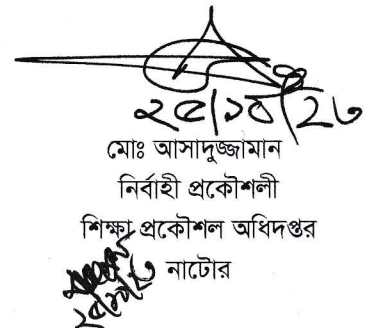 ২৫/১০/২৩
মোঃ আসাদুজ্জামান
নির্বাহী প্রকৌশলী
শিক্ষা প্রকৌশল অধিদপ্তর
নাটোর